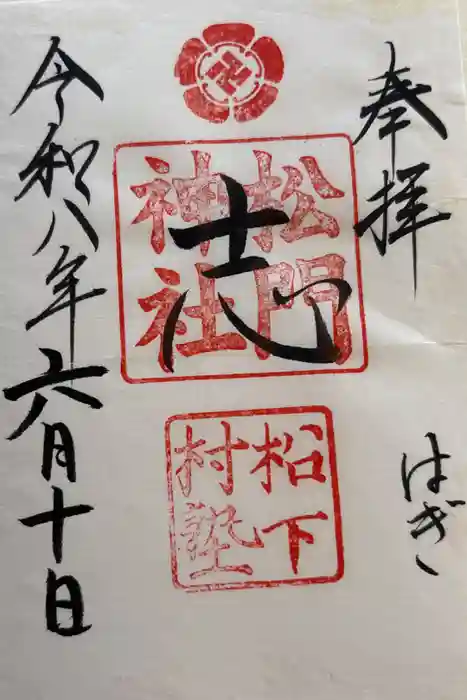 奉拝
はぎ
松門
神社
志
松下
村塾
令和八年六月十日